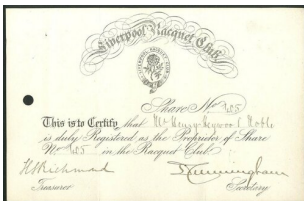 Liverpool Racquet Club.
LIVERPOOL RACQUET CLUB
Share No 455
This is to Certify that Mr Henry Noble
is duly Registered as the Proprietor of Share
No 455 in the Racquet Club
H S Richmond
S Cunningham
Treasurer
Secretary